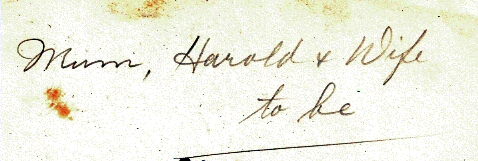 Mum, Harold & Wife
to be